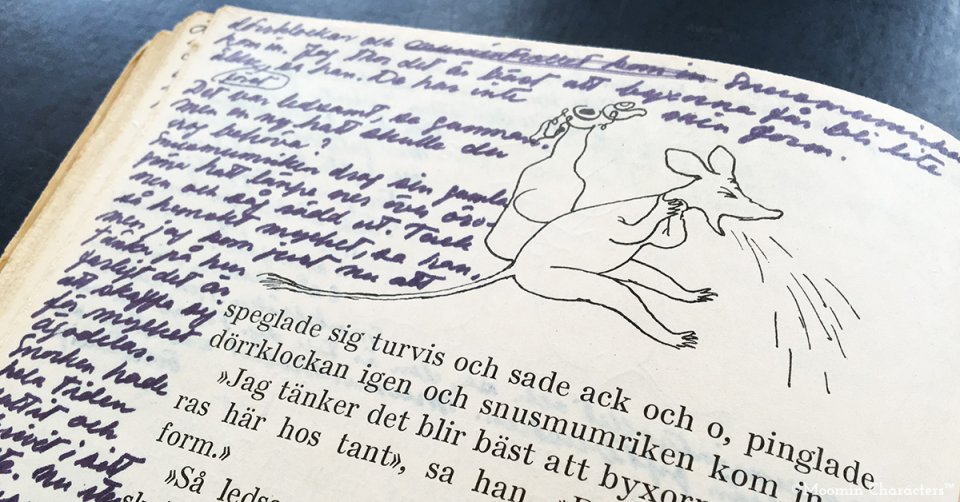 dörrklockan och muminfrallet kom in Snusmumriken
kom in. Jag tror det är bäst att byxorna går bli lite
äldre, sa han. De har inte min form.
Det var ledsamt, sa gumman.
men en ny hatt skulle du
väl behöva?
Snusmumriken drog sin gamla
hatt längre ner över öro-
nen och såg rädd ut. Tack
så hemskt mycket, sa han,
men jag kom just nu att
tänka på hur
det är
att skaffa sig
för mycket
ägodelar.
Snorken hade
hela tiden
suttit och
skrivit i sitt
speglade sig turvis och sade ack och o, pinglade
dörrklockan igen och snusmumriken kom in
»Jag tänker det blir bäst att byxor
ras här hos tant», sa han
form.»
»Så ledsa
Moomin Characters™